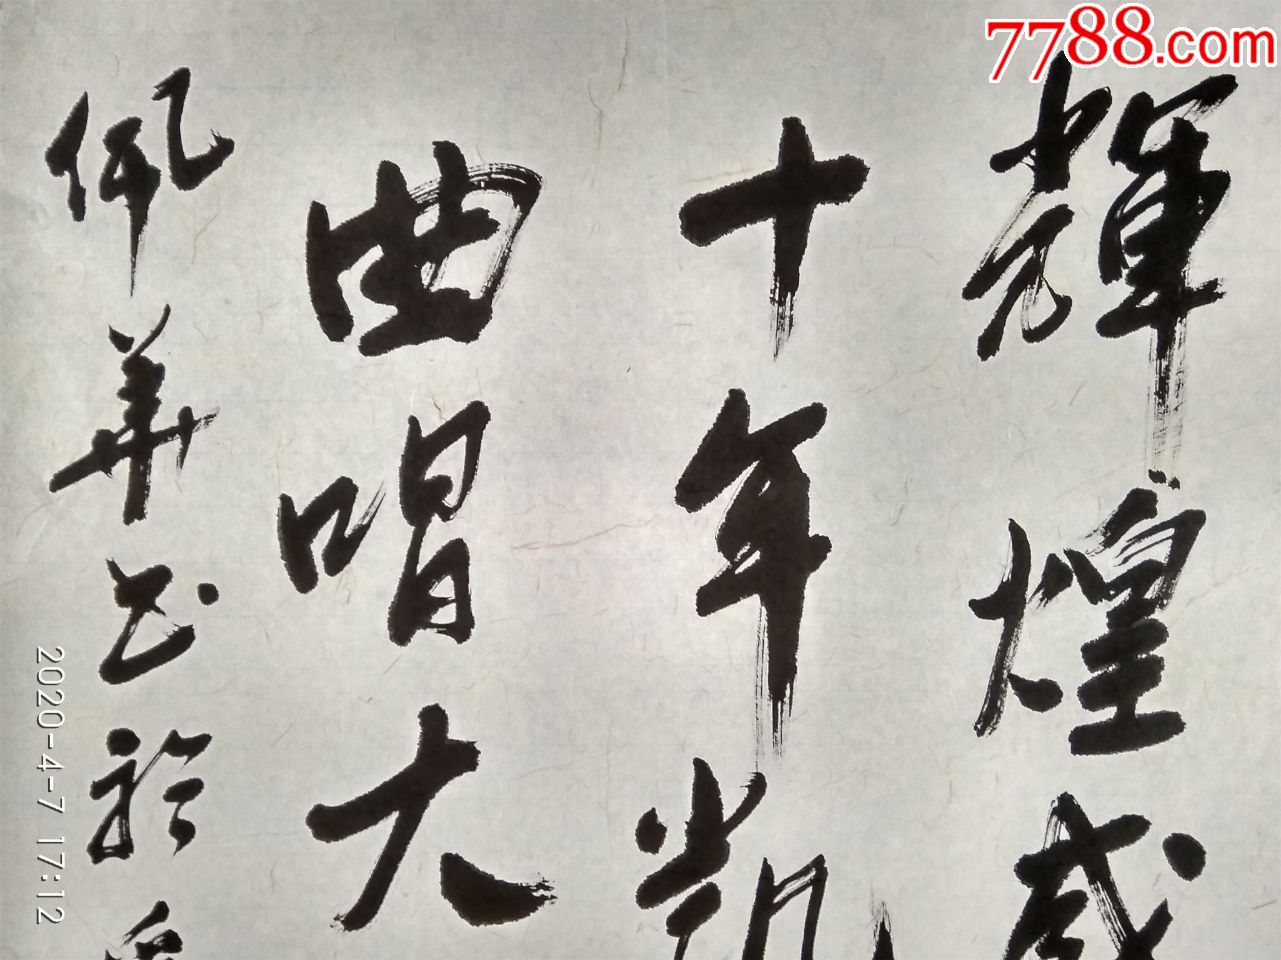 7788.com
輝煌
十年凱
曲唱大
佩華书於
2020-4-7 17:12